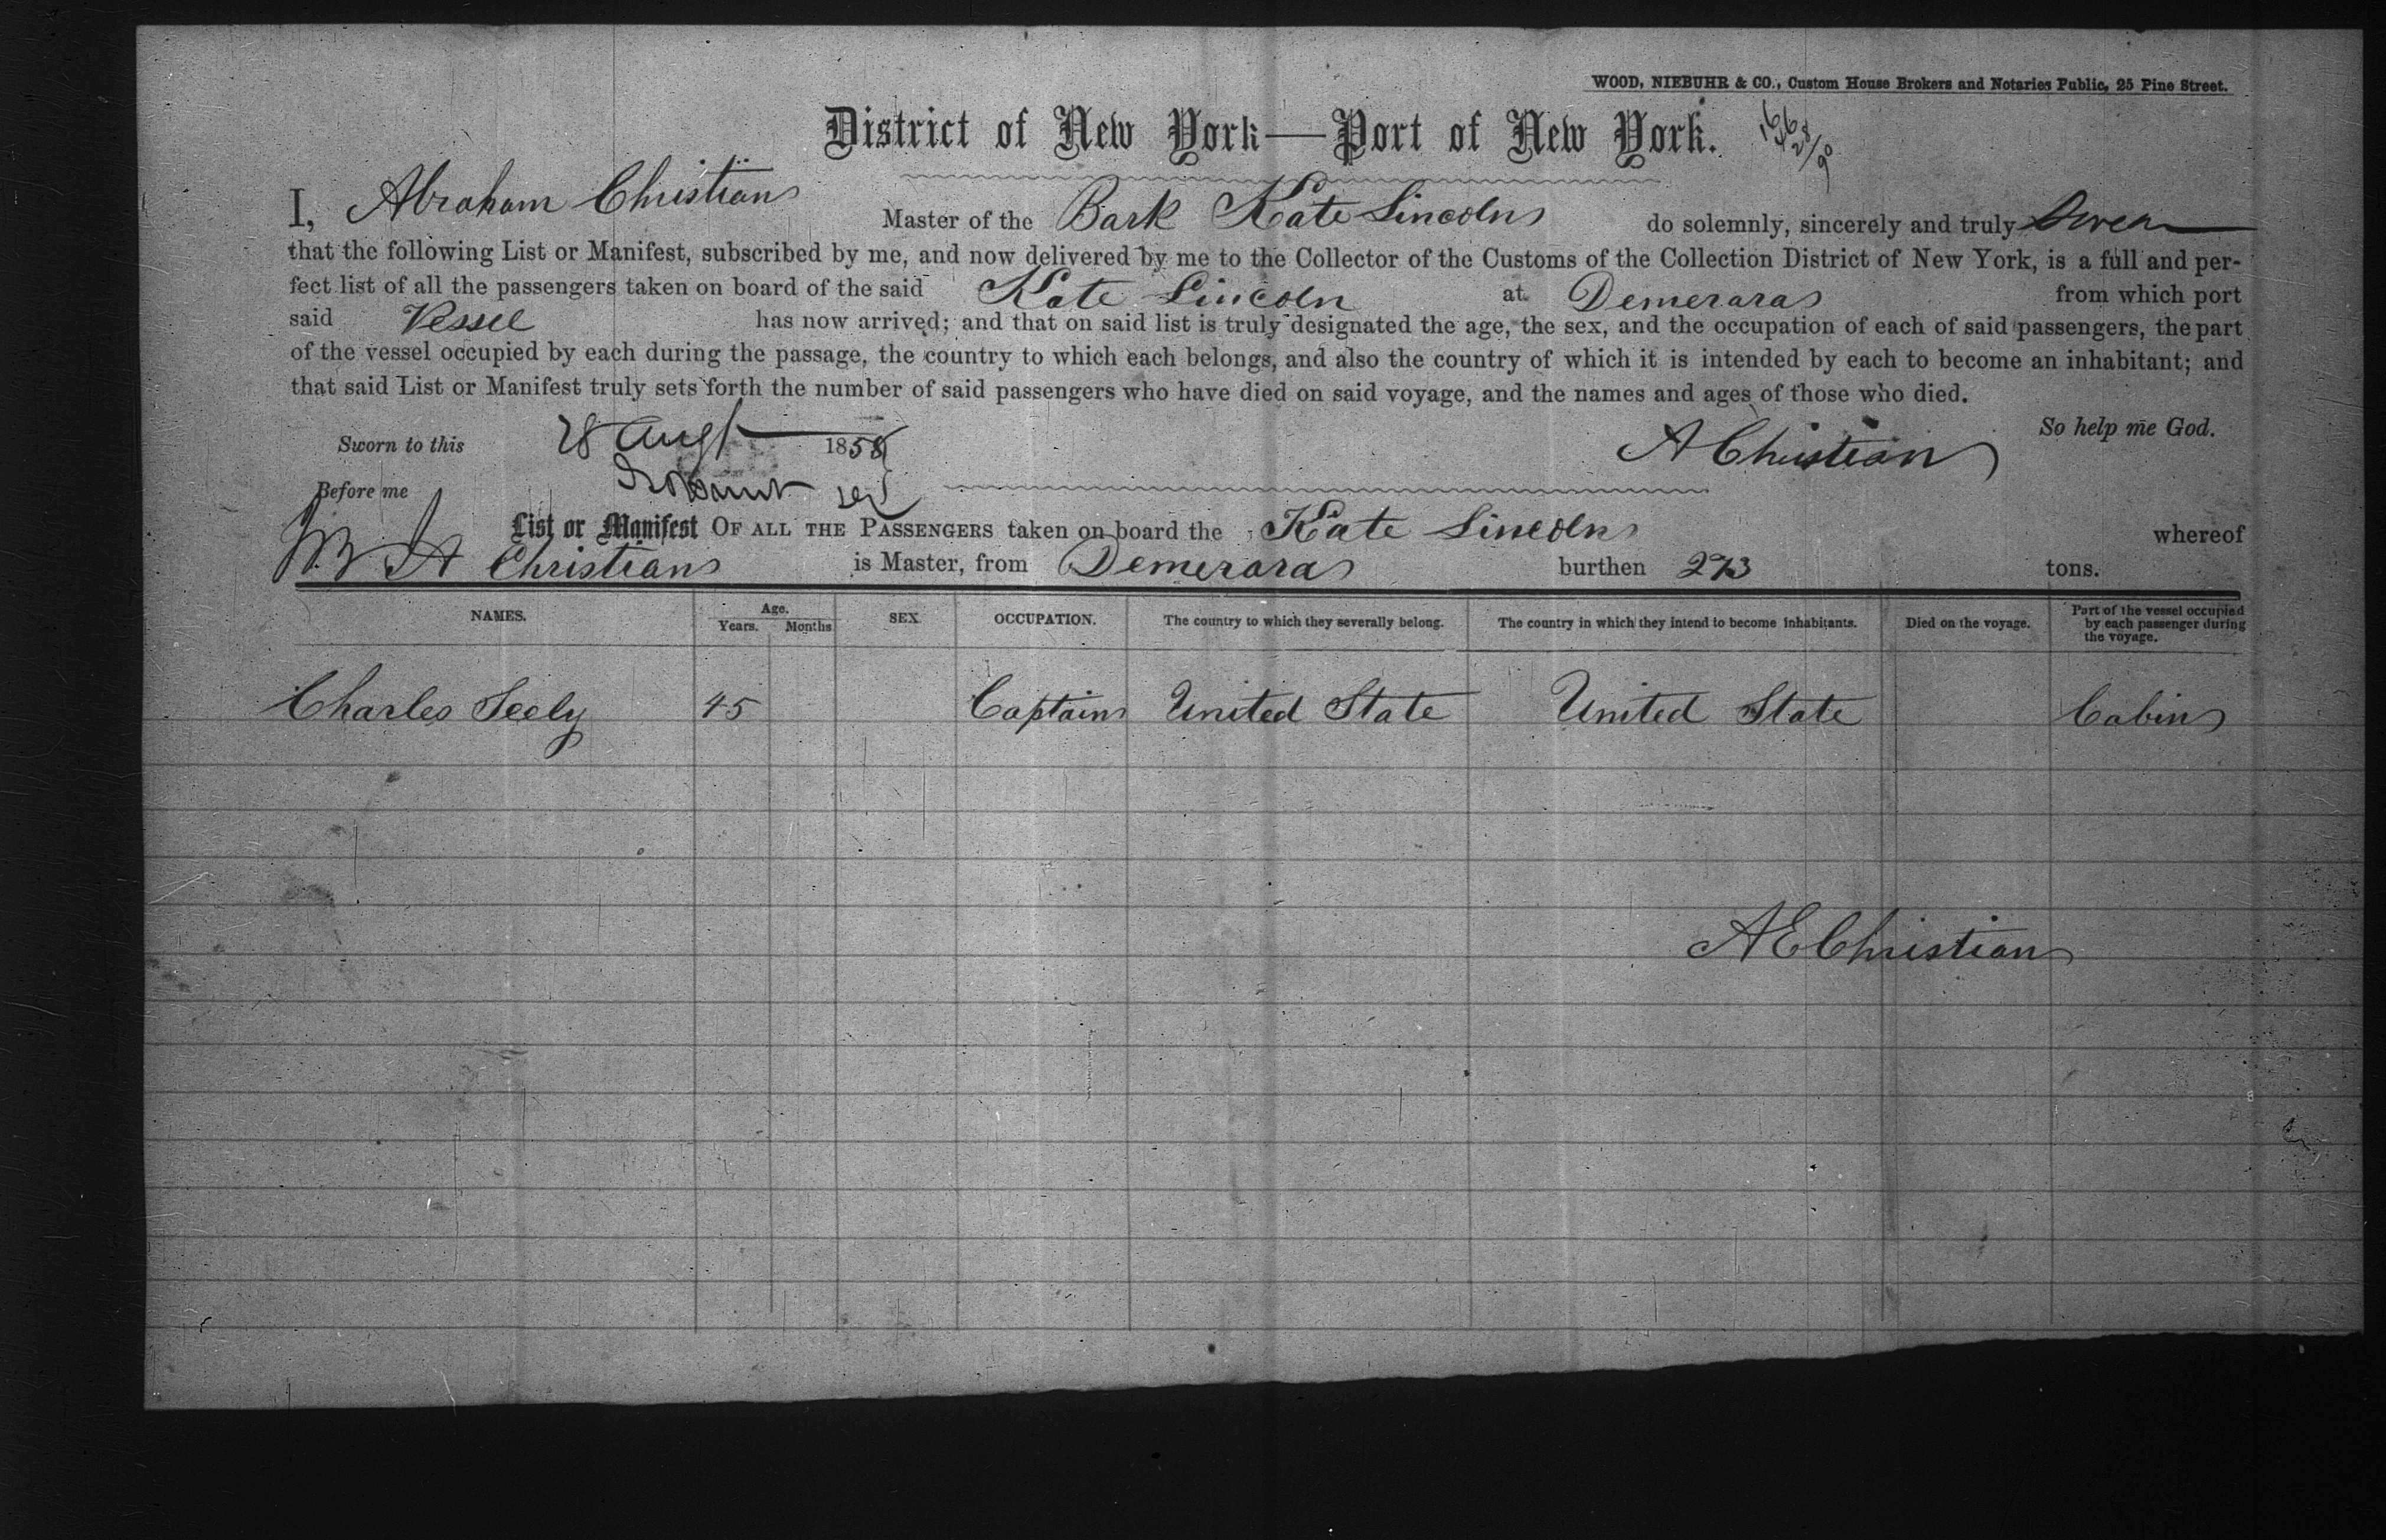 WOOD, NIEBUHR & CO., Custom House Brokers and Notaries Public, 25 Pine Street.
District of New York—Port of New York.
I, Abraham Christian Master of the Bark Kate Lincoln do solemnly, sincerely and truly Swear
that the following List or Manifest, subscribed by me, and now delivered by me to the Collector of the Customs of the Collection District of New York, is a full and per-
fect list of all the passengers taken on board of the said Kate Lincoln at Demerara from which port
said Vessel has now arrived; and that on said list is truly designated the age, the sex, and the occupation of each of said passengers, the part
of the vessel occupied by each during the passage, the country to which each belongs, and also the country of which it is intended by each to become an inhabitant; and
that said List or Manifest truly sets forth the number of said passengers who have died on said voyage, and the names and ages of those who died.
So help me God.
Sworn to this 28 Augt 1858 A Christian
Before me
List or Manifest OF ALL THE PASSENGERS taken on board the Kate Lincoln whereof
A Christian is Master, from Demerara burthen 293 tons.
NAMES. Age. Years. Months SEX OCCUPATION. The country to which they severally belong. The country in which they intend to become inhabitants. Died on the voyage. Part of the vessel occupied by each passenger during the voyage.
Charles Seely 45 Captain United State United State Cabin
A E Christian